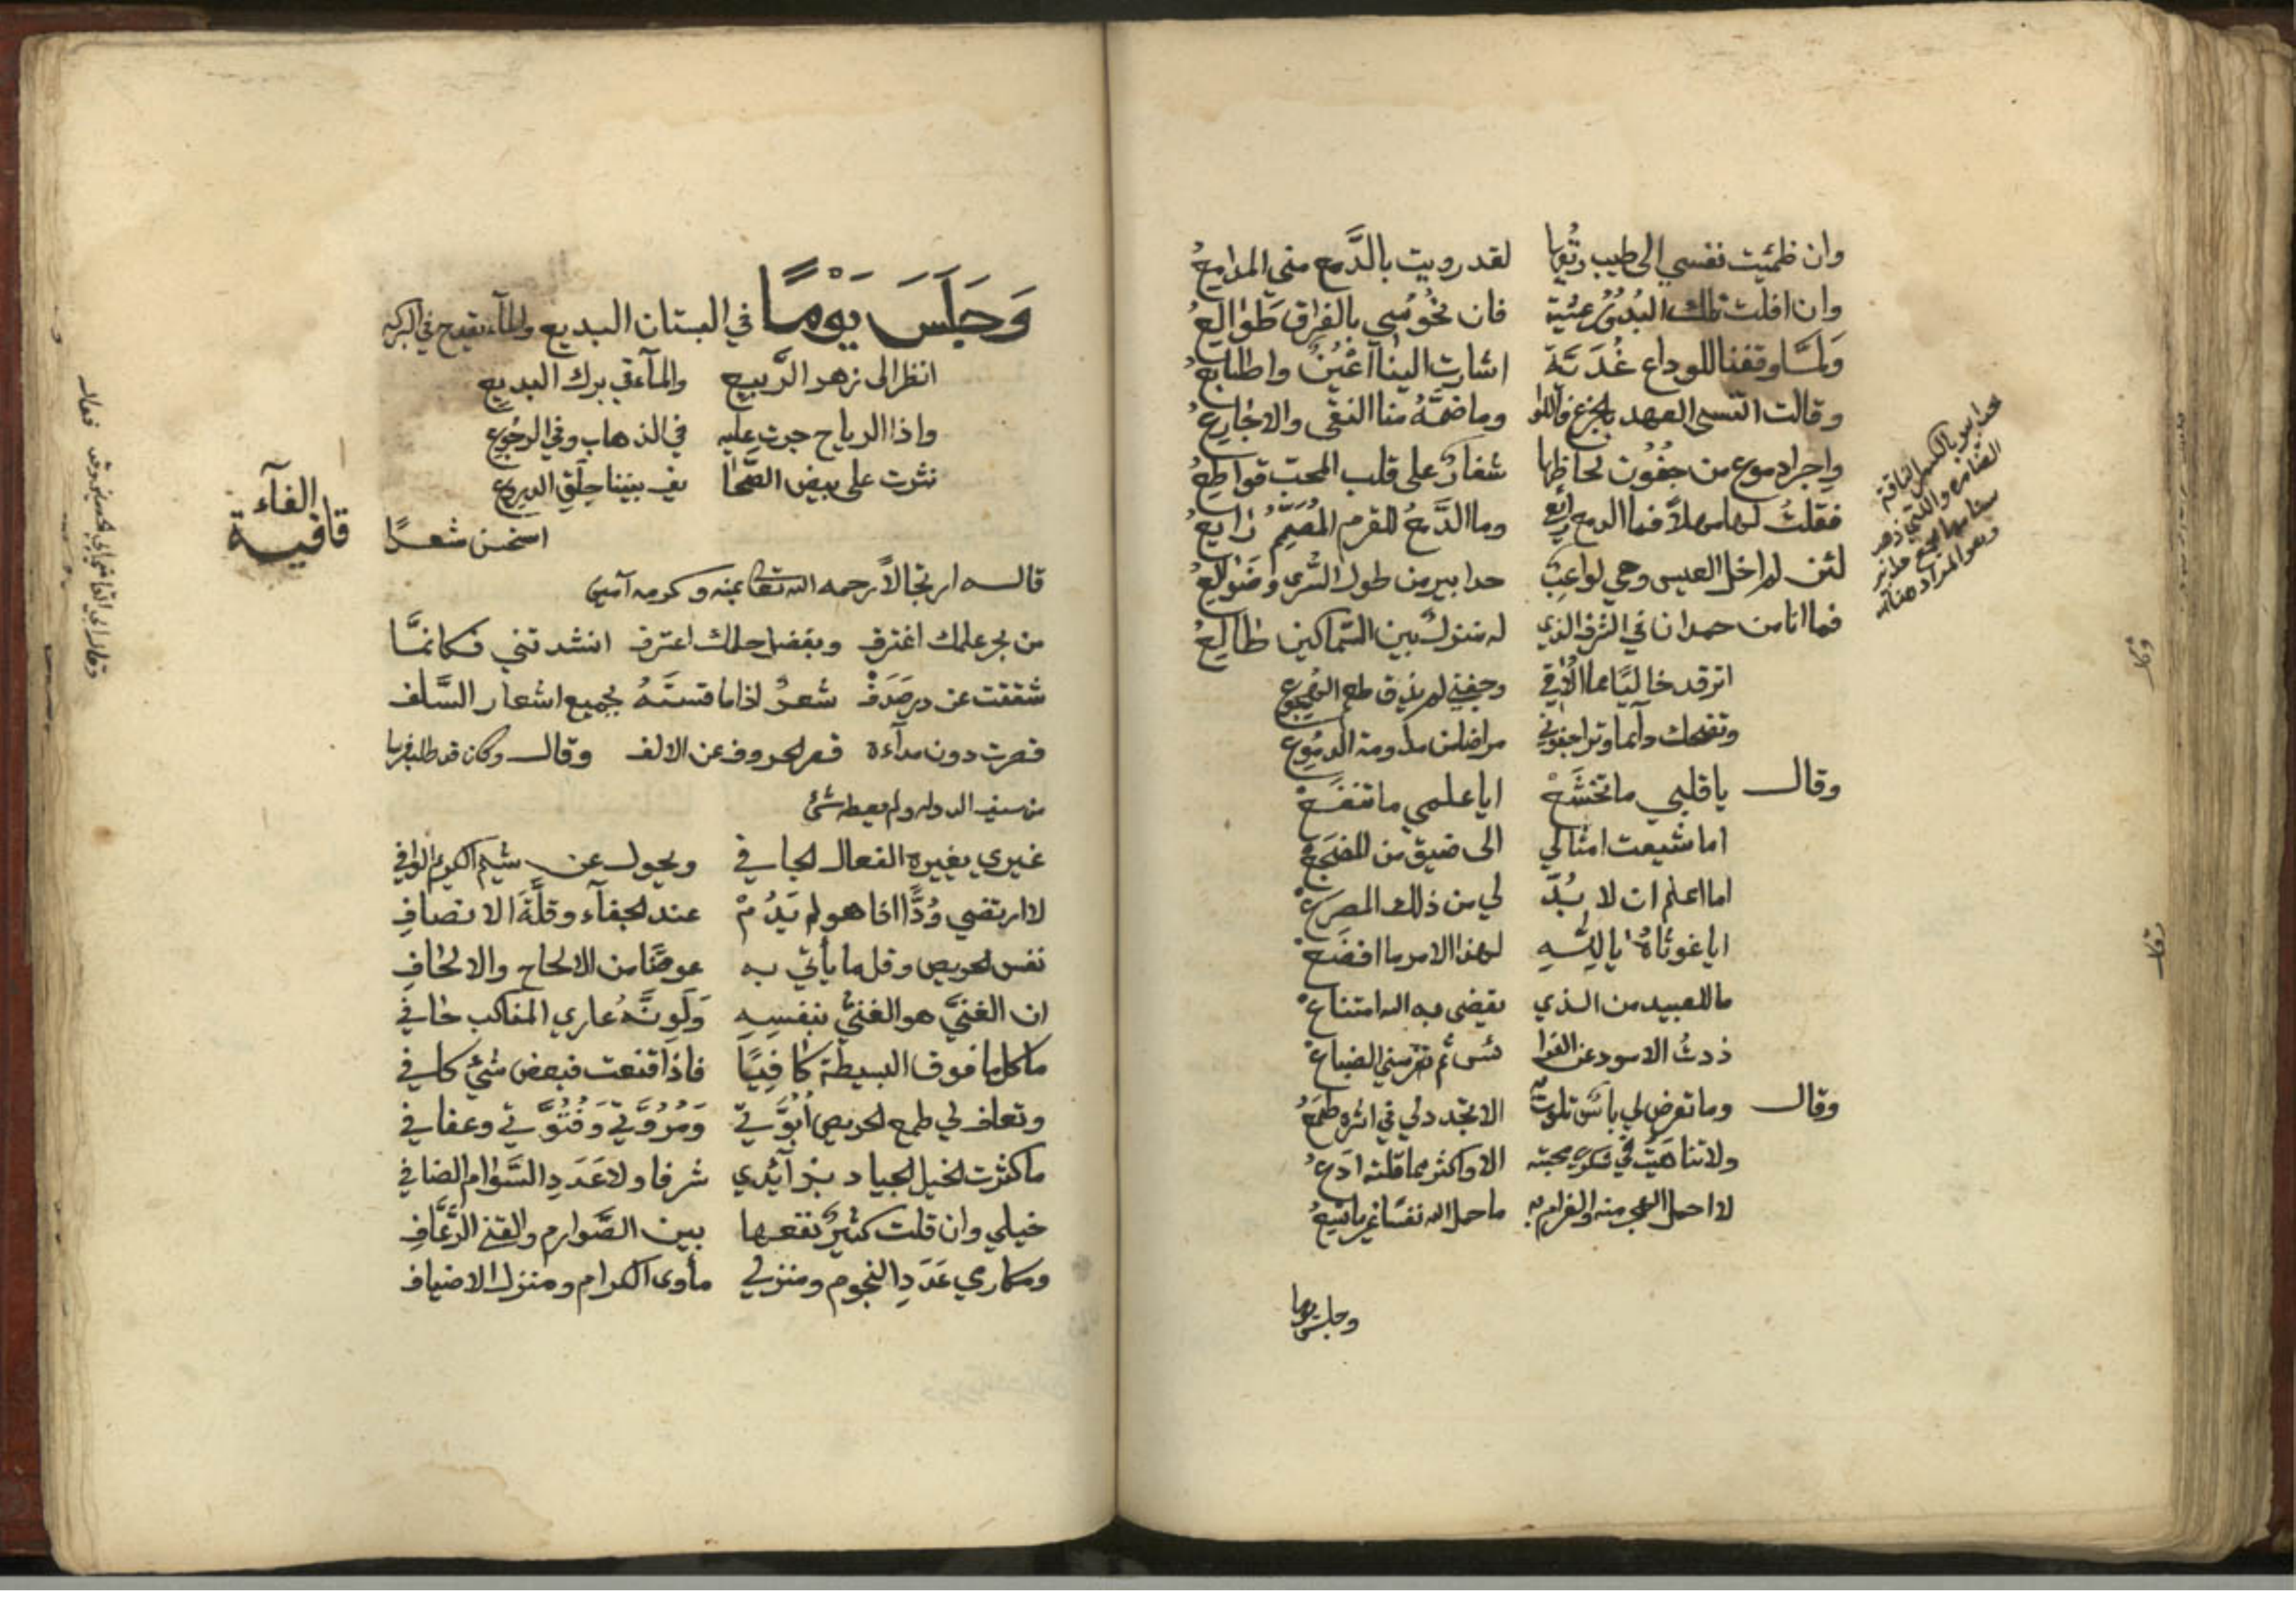 وان ظمئت نفسي الى طيب ريقها لقد رويت بالدَّمع مني المدامعُ
وان افلت تلك البُدُورُ عشية فان نُحُوسي بالفراق طَوَالعُ
وَلمَّا وقفنا للوداع غُدَيَّة اشارت الينا اَعْيُنٌ واصابعُ
وقالت اتنسى العهد بالجزع واللوا وما ضمَّهُ منا النقى والاجارعُ
واجرا دموع من جفُون لحاظها شفارٌ على قلب المحب قواطعُ
فقلتُ لها مهلاً فما الدمع رايع وما الدَّمعُ للقرم المُصَمِّم رايعُ
لئن لم اخل العيس وهي لواغب حدابير من طول السُّرى وضَوَالعُ
فما انا من حمدان في الشرف الذي له منزلٌ بين السماكين طالعُ
حدابير بالكسر الناقة
الضامره والتي ذهب
سنامها
وهو المراد هنا
اترقد خاليًا مما الاقي وجفني لم يذق طعم الهُجوع
وتضحك دآيما وترا جفوني مراضا من مداومة الدمُوع
وقال يا قلبي ما تخشَعْ ايا علمي ما تنفَعْ
اما شيعت امثالي الى ضيق من المضجعْ
اما اعلم ان لا بُدَّ لي من ذلك المصرعْ
ايا غوثاهُ يا للهِ لهذا الامر ما افضعْ
ما للعبيد من الذي يقضي به الله امتناعْ
ذدتُ الاسود عن الفرا ئس ثم تفرسني الضباعْ
وقال وما تعرض لي ياس سلوت به الا تجدد لي في اثره طمعُ
ولا تناهَيْتُ في شكوى محبته الا واكثر مما قلته ادَعُ
لا احمل اللوم منه والغرام به ما حمل الله نفسًا غير ما تسعُ
وجلس يوما
وَجَلَسَ يَوْمًا في البستان البديع والمآء يقيح في البركه
انظر الى زهر الرَّبيع والمآء في برك البديع
واذا الرياح جرت عليه في الذهاب وفي الرجُوع
نثرت على بيض الصَّفا يح بيننا حلق الدروع
قافية الفآء
استحسن شعرًا
قاله ارتجالاً رحمه الله تعالى بمنه وكرمه آمين
من بحر علمك اغترف وبفضل حلمك اعترف انشدتني فكانمَّا
شققت عن در صَدَفْ شعرٌ اذا ما قستَهُ بجميع اشعار السَّلف
قصرت دون مدآءه قصر الحروف عن الالف وقال وكان قد طلب فرسا
من سيف الدوله ولم يعطه شئ
غيري يغيره الفعال الجافي ويحول عن شيم الكريم الوافي
لا ارتضي وُدًّا اذا هو لم يَدُمْ عند الجفآء وقلَّة الانصافِ
نفس الحريص وقل ما يأتي به عوضًا من الالحاح والالحافِ
ان الغنيَّ هو الغنيُّ بنفسِهِ وَلَوِ نَّهُ عاري المناكب حافي
ما كل ما فوق البسيطة كافِيًا فاذا قنعت فبعض شئٍ كافي
وتعاف لي طمع الحريص اُبُوَّتي وَمُرُوَّتي وَفُتُوَّتي وعفافي
ما كثرت الخيل الجياد بزآيدي شرفا ولا عَدَدِ السَّوَام الضافي
خيلي وان قلت كثيرٌ نفعها بين الصَّوارم والقنى الرُّعَّافِ
ومكارمي عَدَدِ النجوم ومنزلي مأوى الكرام ومنزل الاضياف